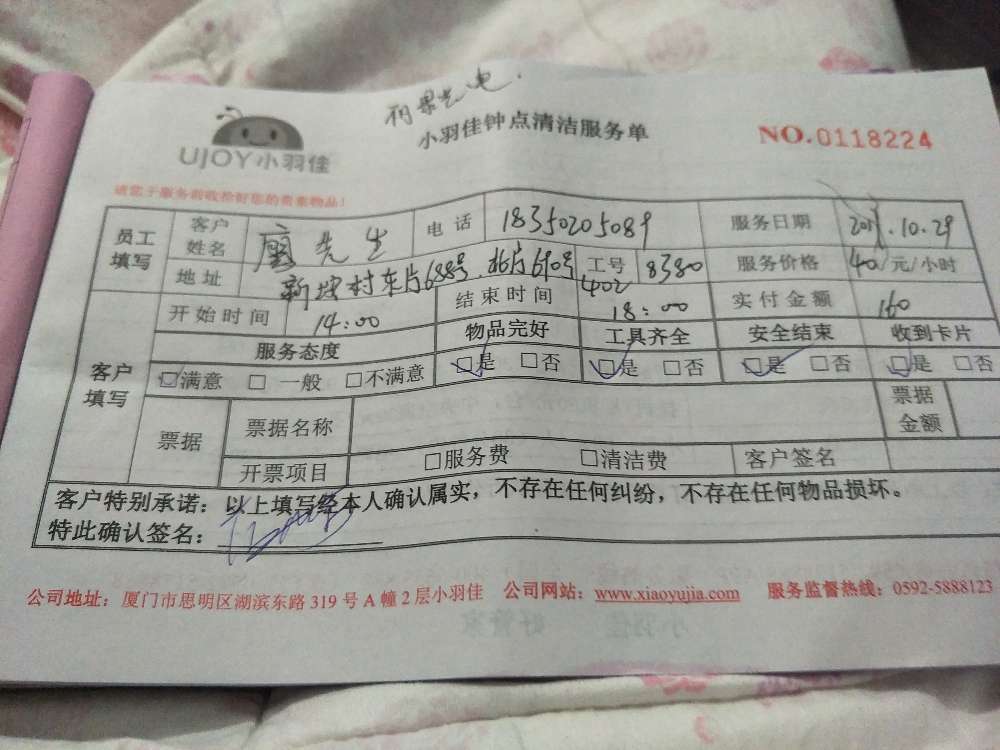 小羽佳钟点清洁服务单
NO.0118224
UJOY小羽佳
请您于服务前收拾好您的贵重物品!
员工填写 客户姓名 先生 电话 18350205089 服务日期 .10.29
地址 新 村东片688号 690号 402 工号 8380 服务价格 40 元/小时
客户填写 开始时间 14:00 结束时间 18:00 实付金额 160
服务态度 物品完好 工具齐全 安全结束 收到卡片
☑满意 □ 一般 □不满意 ☑是 □否 ☑是 □否 ☑是 □否 ☑是 □否
票据 票据名称 票据金额
开票项目 □服务费 □清洁费 客户签名
客户特别承诺：以上填写经本人确认属实，不存在任何纠纷，不存在任何物品损坏。
特此确认签名：
公司地址：厦门市思明区湖滨东路 319 号 A 幢 2 层小羽佳 公司网站：www.xiaoyujia.com 服务监督热线：0592-5888123